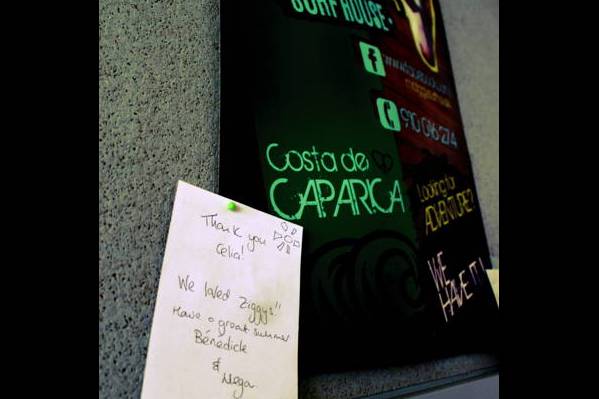 SURF HOUSE
910 016 274
Costa de
CAPARICA
Looking for
ADVENTURE?
WE
HAVE IT!
Thank you
Celia!
We loved Ziggys!!
Have a great summer
Bénédick
&
Megan